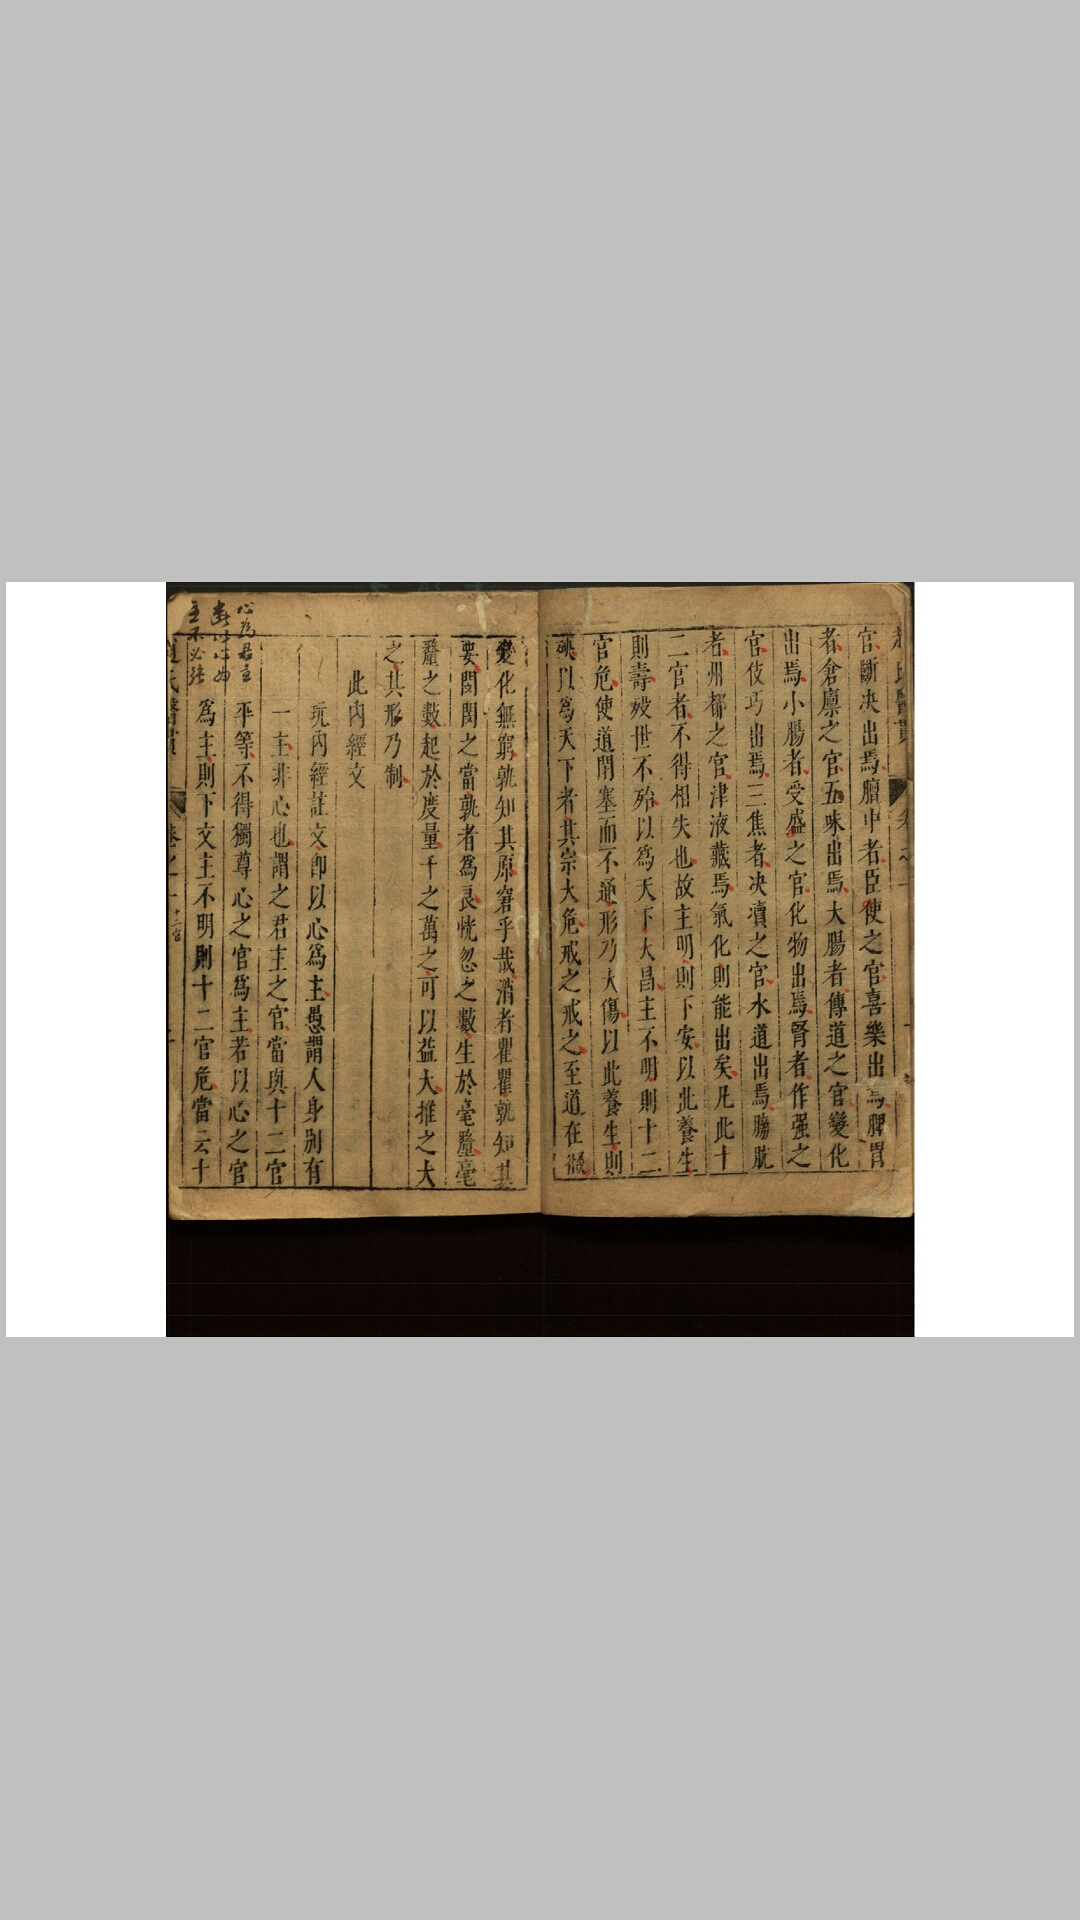 官斷决出焉膻中者臣使之官喜樂出焉脾胃
者倉廪之官五味出焉大腸者傳道之官變化
出焉小腸者受盛之官化物出焉腎者作强之
官伎巧出焉三焦者决瀆之官水道出焉膀胱
者州都之官津液藏焉氣化則能出矣凡此十
二官者不得相失也故主明則下安以此養生
則壽歿世不殆以爲天下大昌主不明則十二
官危使道閉塞而不通形乃大傷以此養生則
殃以爲天下者其宗大危戒之戒之至道在微
變化無窮孰知其原窘乎哉消者瞿瞿孰知其
要閔閔之當孰者爲良恍惚之數生於毫釐毫
釐之數起於度量千之萬之可以益大推之大
之其形乃制
此内經文
玩内經註文即以心爲主愚謂人身别有
一主非心也謂之君主之官當與十二官
平等不得獨尊心之官爲主若以心之官
爲主則下文主不明則十二官危當云十
趙氏醫貫
卷之一
十二官
心为君主
主不必